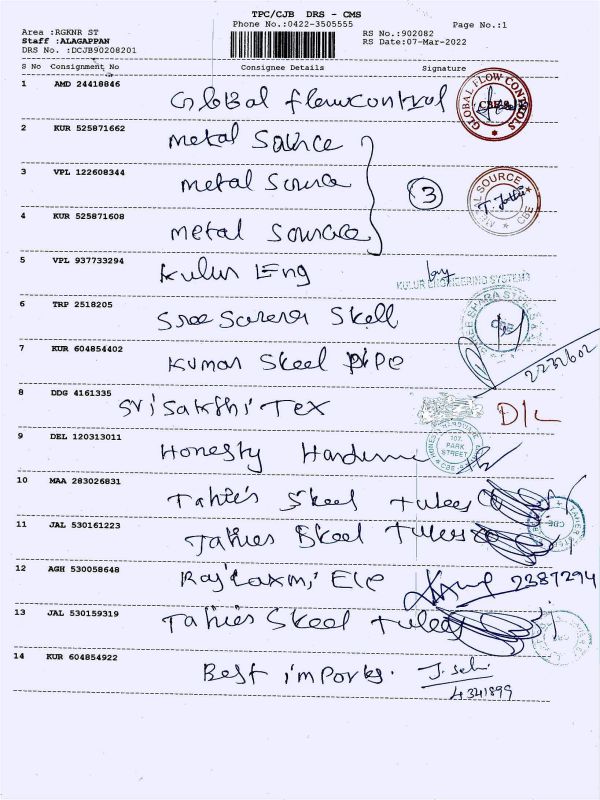 TPC/CJB DRS - CMS
Phone No.:0422-3505555
Page No.:1
Area :RGKNR ST
RS No.:902082
Staff :ALAGAPPAN
RS Date:07-Mar-2022
DRS No. :DCJB90208201
S No Consignment No Consignee Details Signature
1 AMD 24418846 Global flowcontrol
GLOBAL FLOW CONTROLS
CBE
2 KUR 525871662 Metal Source
3 VPL 122608344 Metal Source
3
METAL SOURCE
CBE
4 KUR 525871608 Metal Source
5 VPL 937733294 Kulur Eng
KULUR ENGINEERING SYSTEMS
6 TRP 2518205 Sree Sarera Skell
CBE
7 KUR 604854402 Kumar Skeel pipe
2232602
8 DDG 4161335 Sri Sakthi Tex D/L
9 DEL 120313011 Honesty
107, PARK STREET
10 MAA 283026831 Tahie's Skeel Tulees
11 JAL 530161223 Tahies Skeel Tulees
CBE
12 AGH 530058648 Rajlaxmi Ele 2387294
13 JAL 530159319 Tahies Skeel Tulees
14 KUR 604854922 Best imports.
4341899